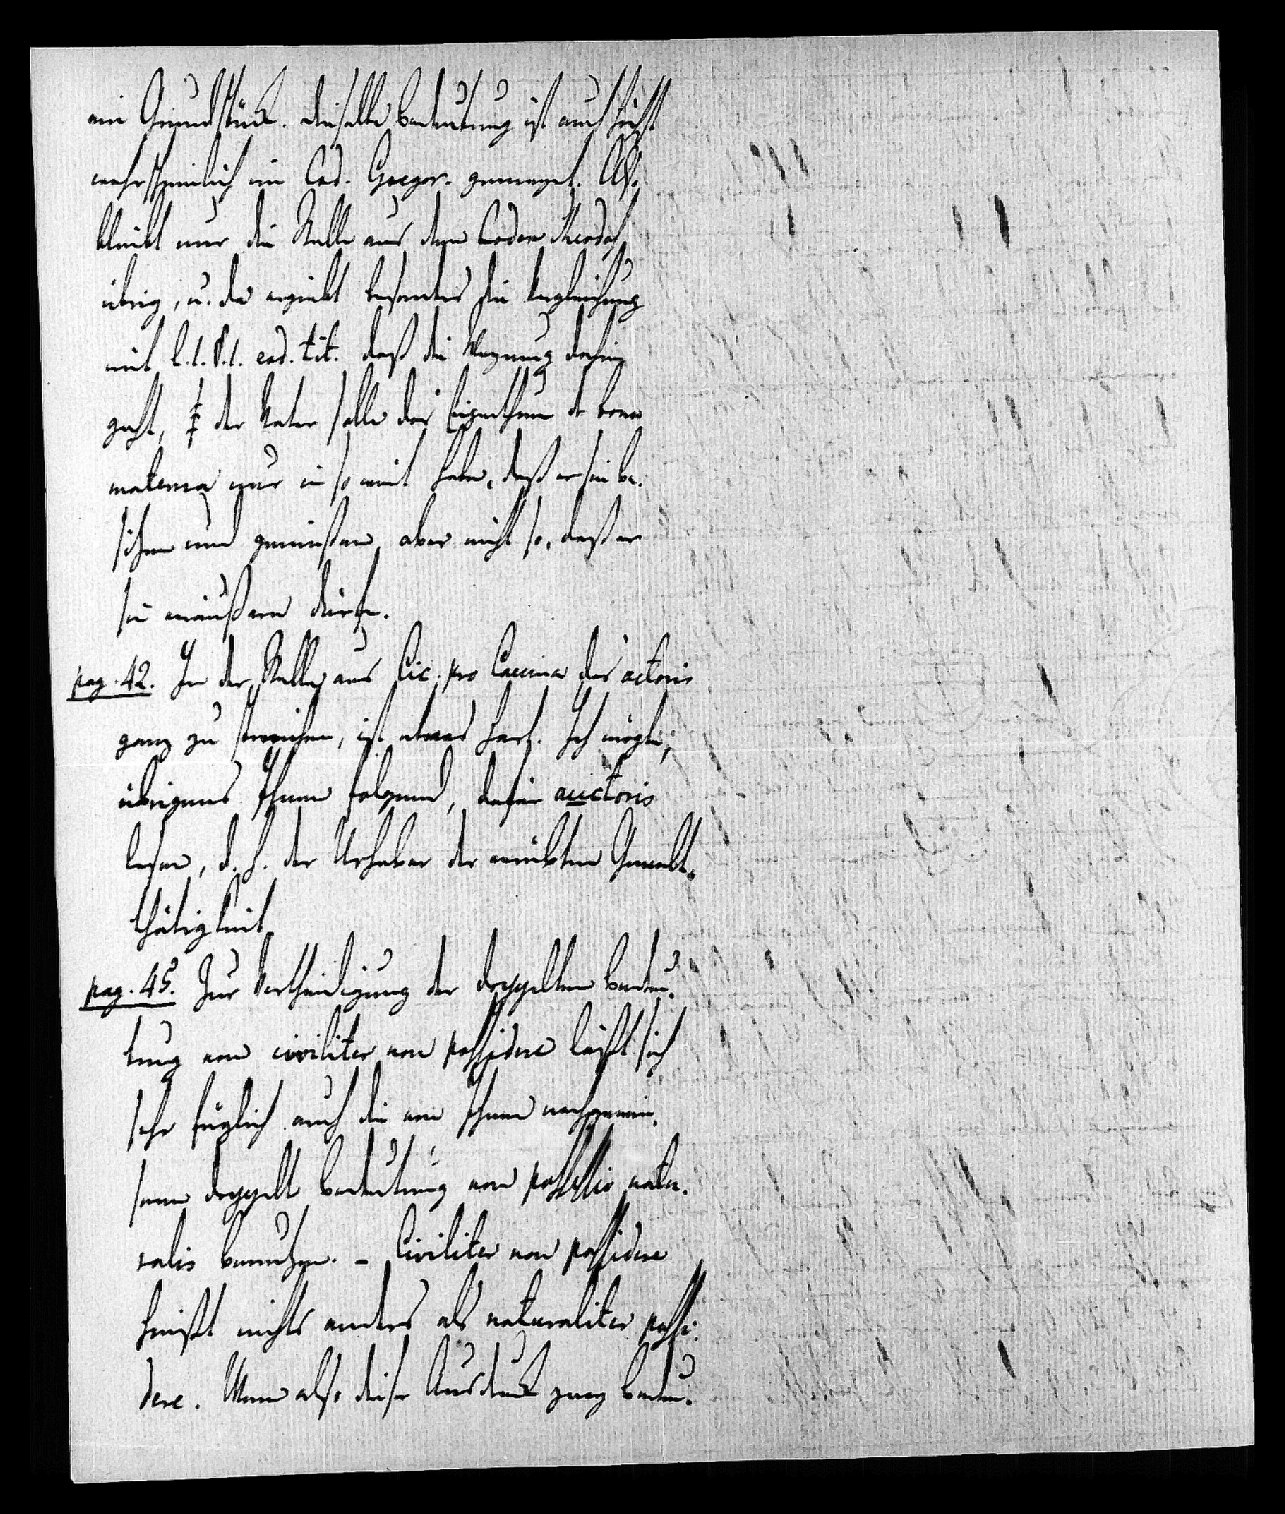 ein Grundstück. Dieselbe Bedeutung ist auch höchst
wahrscheinlich im Cod. Gregor. gemeynt. Also
bleibt nur die Stelle aus dem Codex Theodos.
übrig, u. da ergiebt besonders die Vergleichung
mit l. 1. §. 1. eod. tit. daß die Meynung dahin
geht, der Vater solle das Eigenthum der bona
materna nur in so weit habe, daß er sie be-
sitzen und genießen, aber nicht so, daß er
sie veräußern dürfe.
pag. 42. In der Stelle aus Cic. pro Caecina das actoris
ganz zu streichen, ist etwas hart. Ich mögte,
übrigens Ihnen folgend, dafür auctoris
lesen, d. h. der Urheber der verübten Gewalt-
thätigkeit
pag. 45. Zur Vertheidigung der doppelten Bedeu-
tung von civiliter non possidere läßt sich
sehr füglich auch die von Ihnen nachgewie-
sene doppelte Bedeutung von possessio natu-
ralis benutzen. – Civiliter non possidere
heißt nichts anders als naturaliter possi-
dere. Wenn also dieser Ausdruck zwey Bedeu-